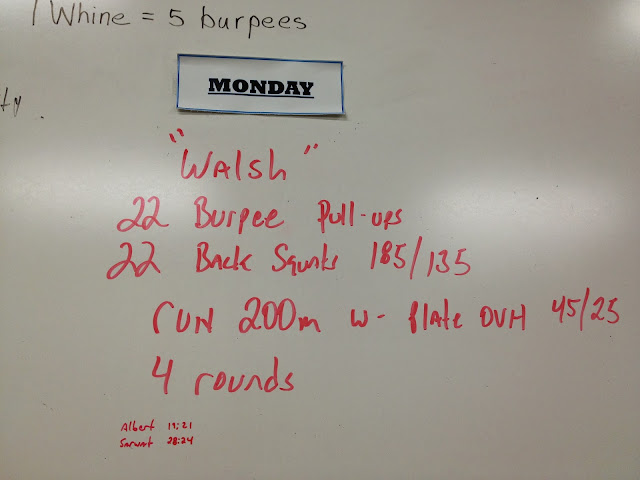 1 Whine = 5 burpees
MONDAY
ty.
"Walsh"
22 Burpee Pull-ups
22 Back Squats 185/135
run 200m w- Plate OVH 45/25
4 rounds
Albert 19:21
28:24